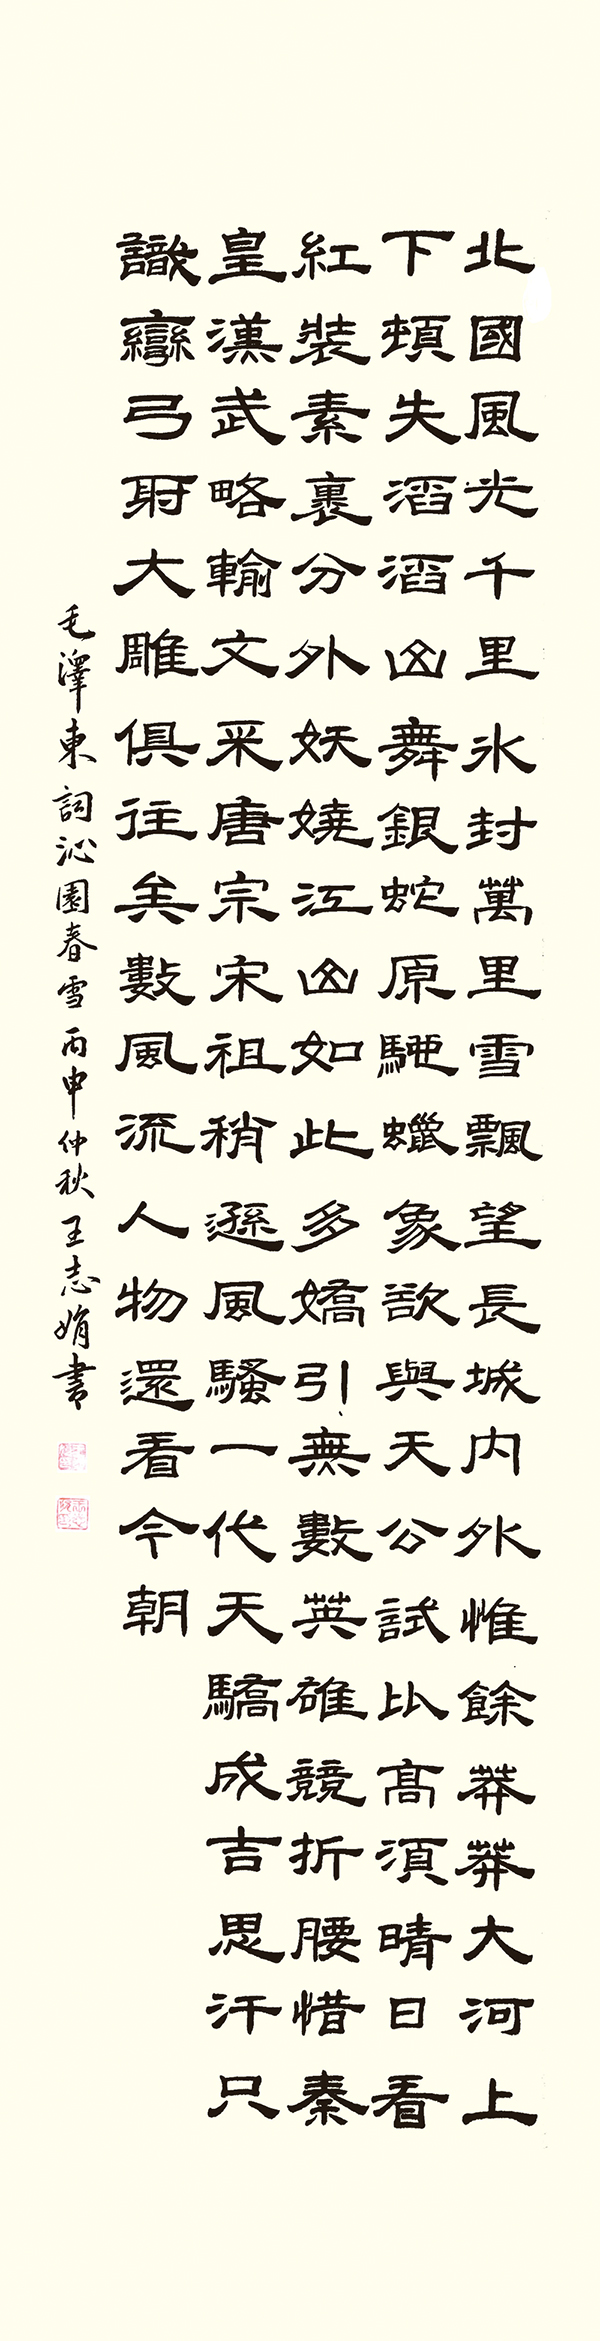 北國風光千里冰封萬里雪飄望長城内外惟餘莽莽大河上
下頓失滔滔山舞銀蛇原馳蠟象欲與天公試比高須晴日看
紅裝素裹分外妖嬈江山如此多嬌引無數英雄競折腰惜秦
皇漢武略輸文采唐宗宋祖稍遜風騷一代天驕成吉思汗只
識彎弓射大雕俱往矣數風流人物還看今朝
毛澤東詞沁園春雪丙申仲秋王志娟書